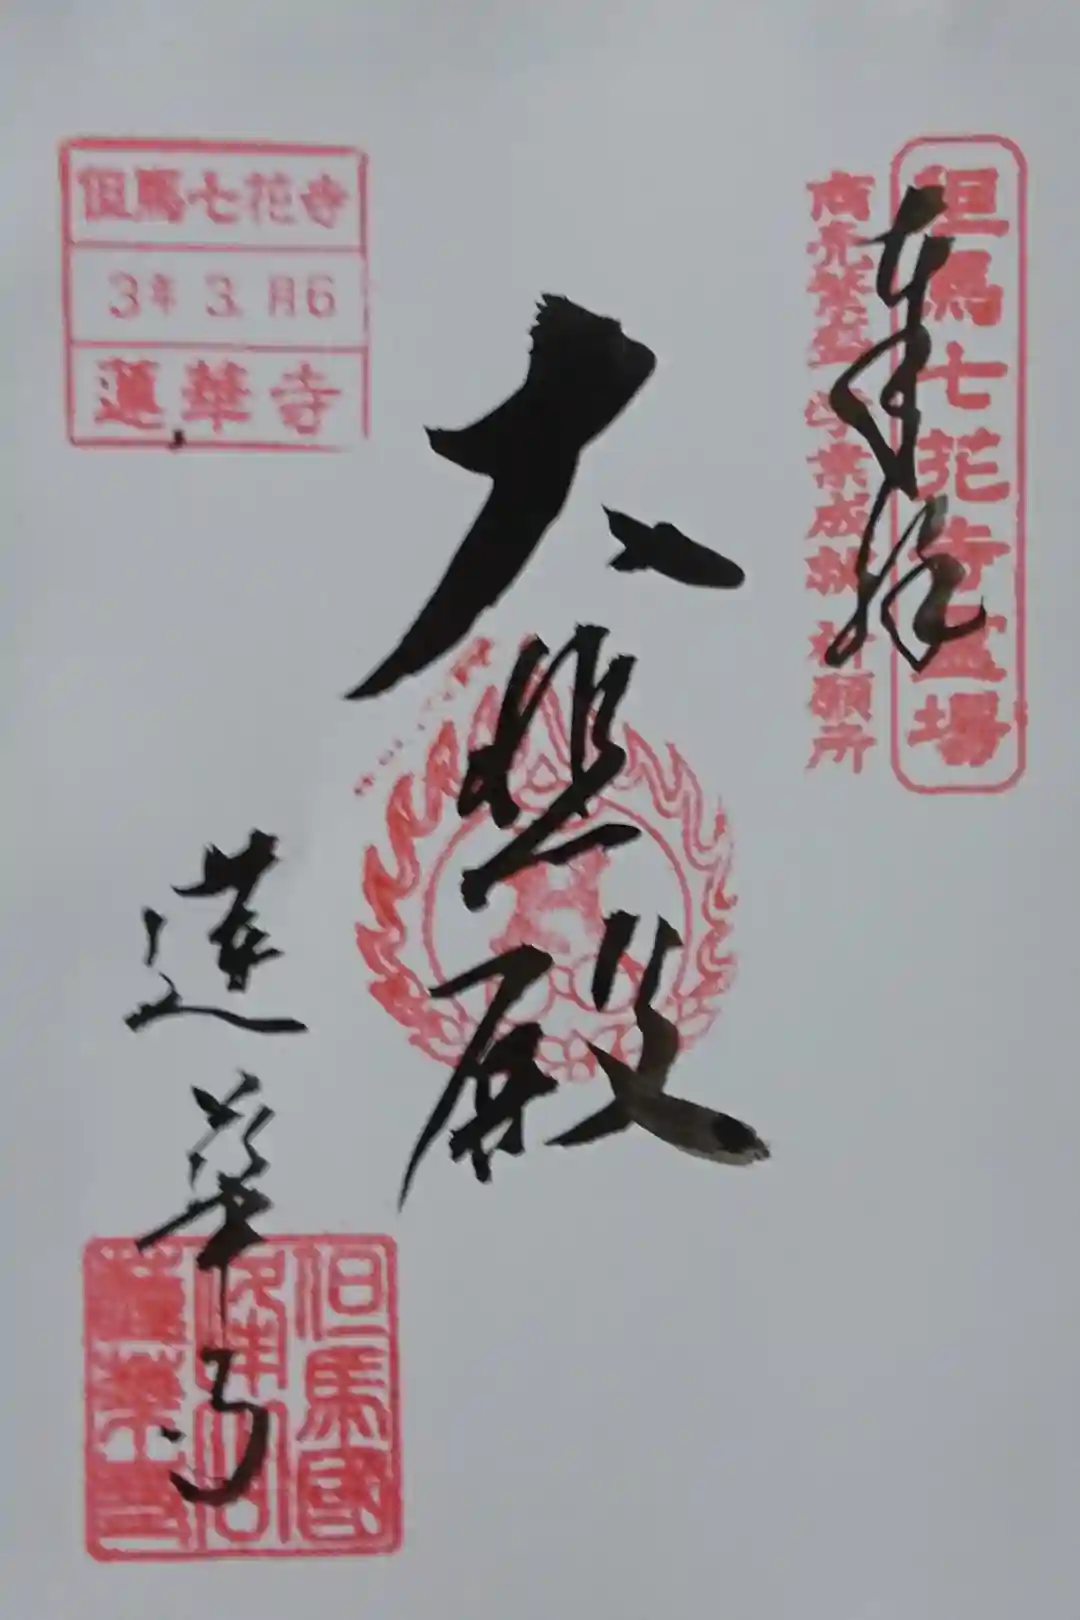 但馬七花寺霊場
奉拝
商売繁盛 学業成就 祈願所
大悲殿
但馬七花寺
3年 3.月6
蓮華寺
蓮華寺
但馬國